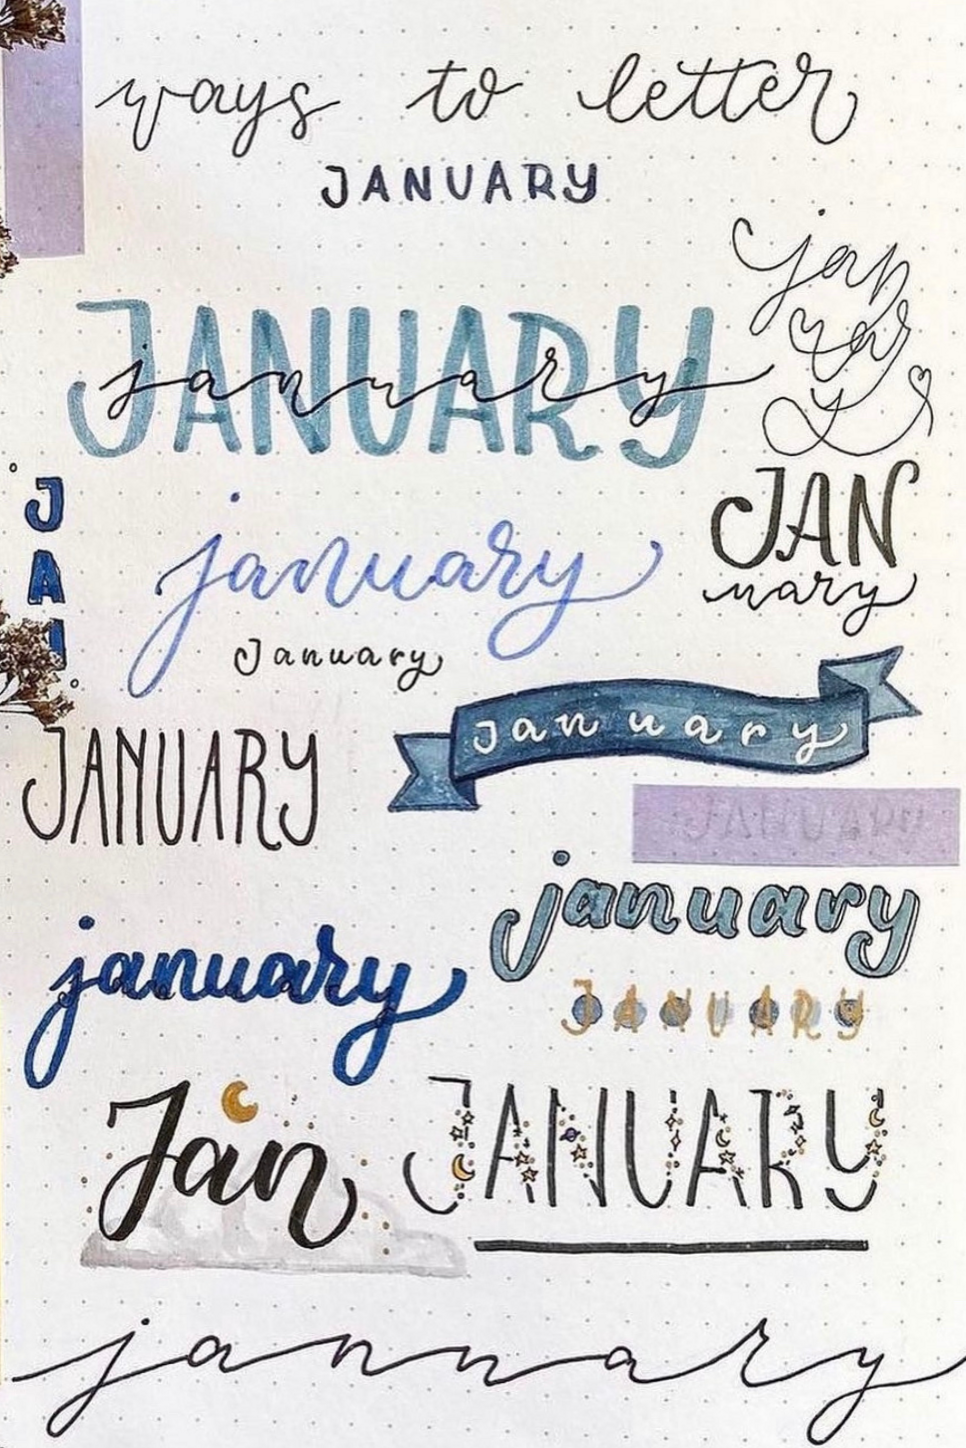 ways to letter
JANUARY
jan
uar
y
JANUARY
january
JAN
january
JAN
uary
January
january
JANUARY
JANUARY
january
january
JANUARY
Jan
JANUARY
january